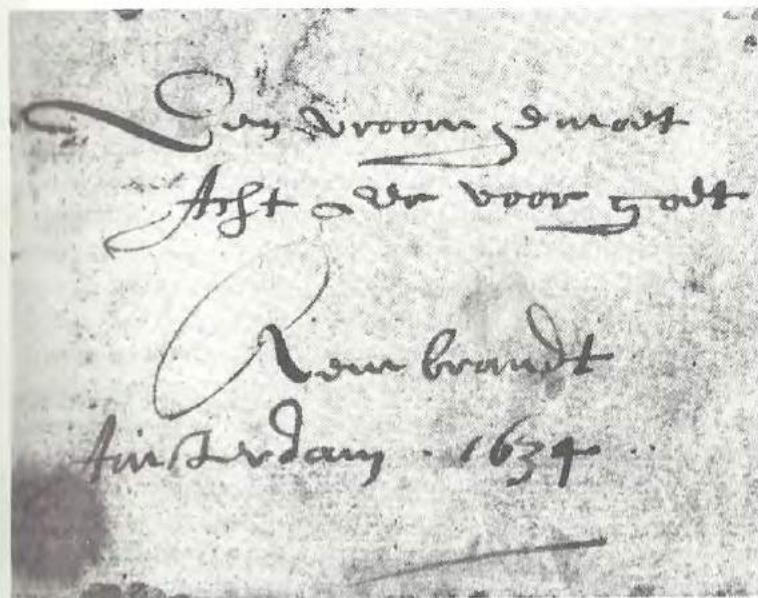 Een vroom gemoet
Acht eer voor goet
Rembrandt
Amsterdam . 1634